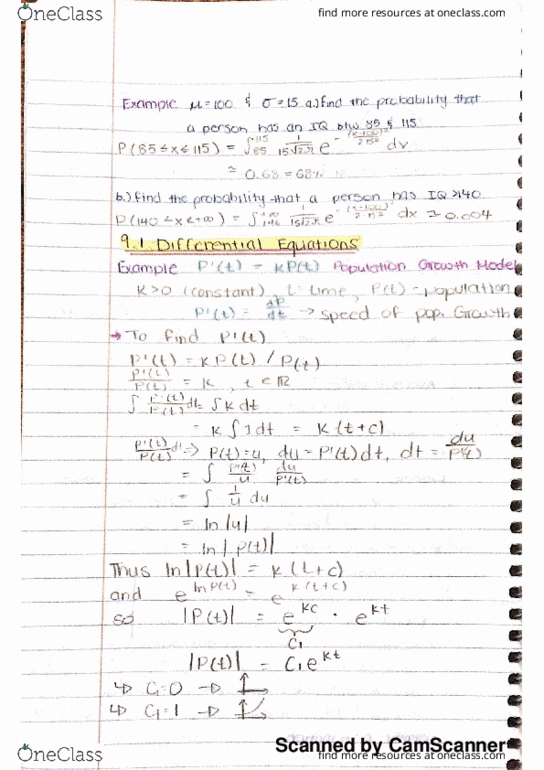 OneClass
find more resources at oneclass.com
Example μ=100 & σ=15 a.) find the probability that
a person has an IQ btw 85 & 115
P(85≤x≤115) = ∫₈₅¹¹⁵ 1/(15√2π) e^-(x-100)²/2·15² dx
≈ 0.68 = 68%
b.) find the probability that a person has IQ >140
P(140<x<+∞) = ∫₁₄₀^+∞ 1/(15√2π) e^-(x-100)²/2·15² dx ≈ 0.004
9.1 Differential Equations
Example P'(t) = KP(t) Population Growth Model
K>0 (constant), t = time, P(t) = population
P'(t) = dP/dt → speed of pop. Growth
→ To find P'(t)
P'(t) = KP(t) / P(t)
P'(t)/P(t) = K , t ∈ ℝ
∫ P'(t)/P(t) dt = ∫ K dt
= K ∫ 1 dt = K (t+c)
P'(t)/P(t) dt => P(t)=u, du = P'(t)dt, dt = du/P'(t)
= ∫ P'(t)/u · du/P'(t)
= ∫ 1/u du
= ln|u|
= ln|P(t)|
Thus ln|P(t)| = K(t+c)
and e^lnP(t) = e^K(t+c)
so |P(t)| = e^KC · e^Kt
C₁
|P(t)| = C₁e^Kt
↳ C₁=0 →
↳ C₁=1 →
Scanned by CamScanner
OneClass
find more resources at oneclass.com